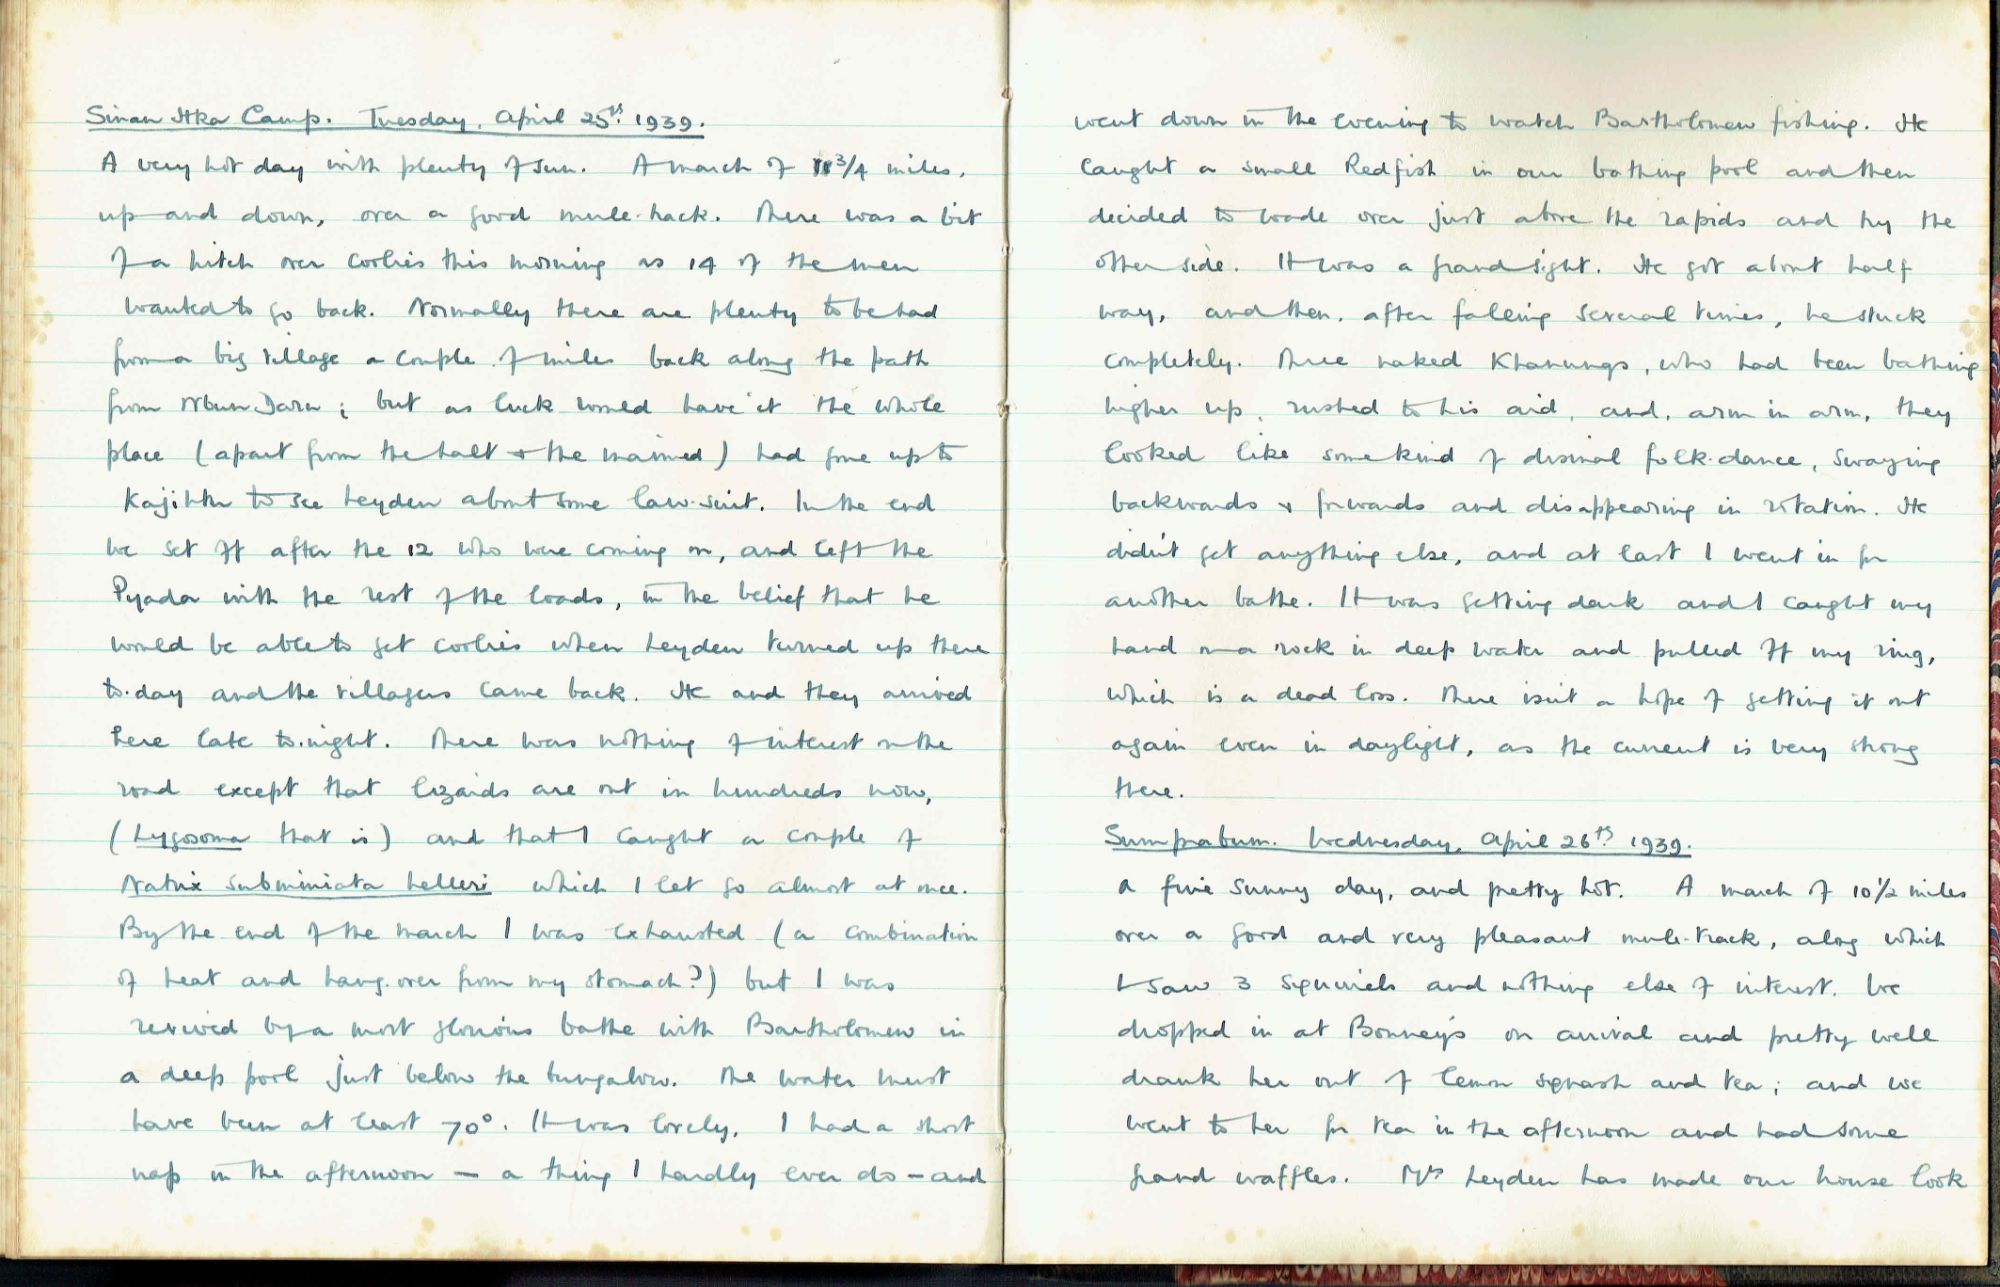 Sinan Hka Camp. Tuesday, April 25th. 1939.
A very hot day with plenty of sun. A march of 11 3/4 miles,
up and down, over a good mule-track. There was a bit
of a hitch over coolies this morning as 14 of the men
wanted to go back. Normally there are plenty to be had
from a big village a couple of miles back along the path
from Nbun Daru; but as luck would have it the whole
place (apart from the halt & the maimed) had gone up to
Kajihtu to see Leyden about some law-suit. In the end
we set off after the 12 who were coming on, and left the
Pyada with the rest of the loads, in the belief that he
would be able to get coolies when Leyden turned up there
to-day and the villagers came back. He and they arrived
here late to-night. There was nothing of interest on the
road except that lizards are out in hundreds now,
(Lygosoma that is) and that I caught a couple of
Natrix subminiata helleri which I let go almost at once.
By the end of the march I was exhausted (a combination
of heat and hang-over from my stomach?) but I was
revived by a most glorious bathe with Bartholomew in
a deep pool just below the bungalow. The water must
have been at least 70°. It was lovely. I had a short
nap in the afternoon — a thing I hardly ever do — and
went down in the evening to watch Bartholomew fishing. He
caught a small Redfish in our bathing pool and then
decided to wade over just above the rapids and try the
other side. It was a grand sight. He got about half
way, and then, after falling several times, he stuck
completely. Three naked Khanungs, who had been bathing
higher up, rushed to his aid, and, arm in arm, they
looked like some kind of dismal folk-dance, swaying
backwards & forwards and disappearing in rotation. He
didn't get anything else, and at last I went in for
another bathe. It was getting dark and I caught my
hand on a rock in deep water and pulled off my ring,
which is a dead loss. There isn't a hope of getting it out
again even in daylight, as the current is very strong
there.
Sumprabum. Wednesday, April 26th 1939.
A fine sunny day, and pretty hot. A march of 10 1/2 miles
over a good and very pleasant mule-track, along which
I saw 3 squirrels and nothing else of interest. We
dropped in at Bonney's on arrival and pretty well
drank her out of lemon squash and tea; and we
went to her for tea in the afternoon and had some
grand waffles. Mrs Leyden has made our house look